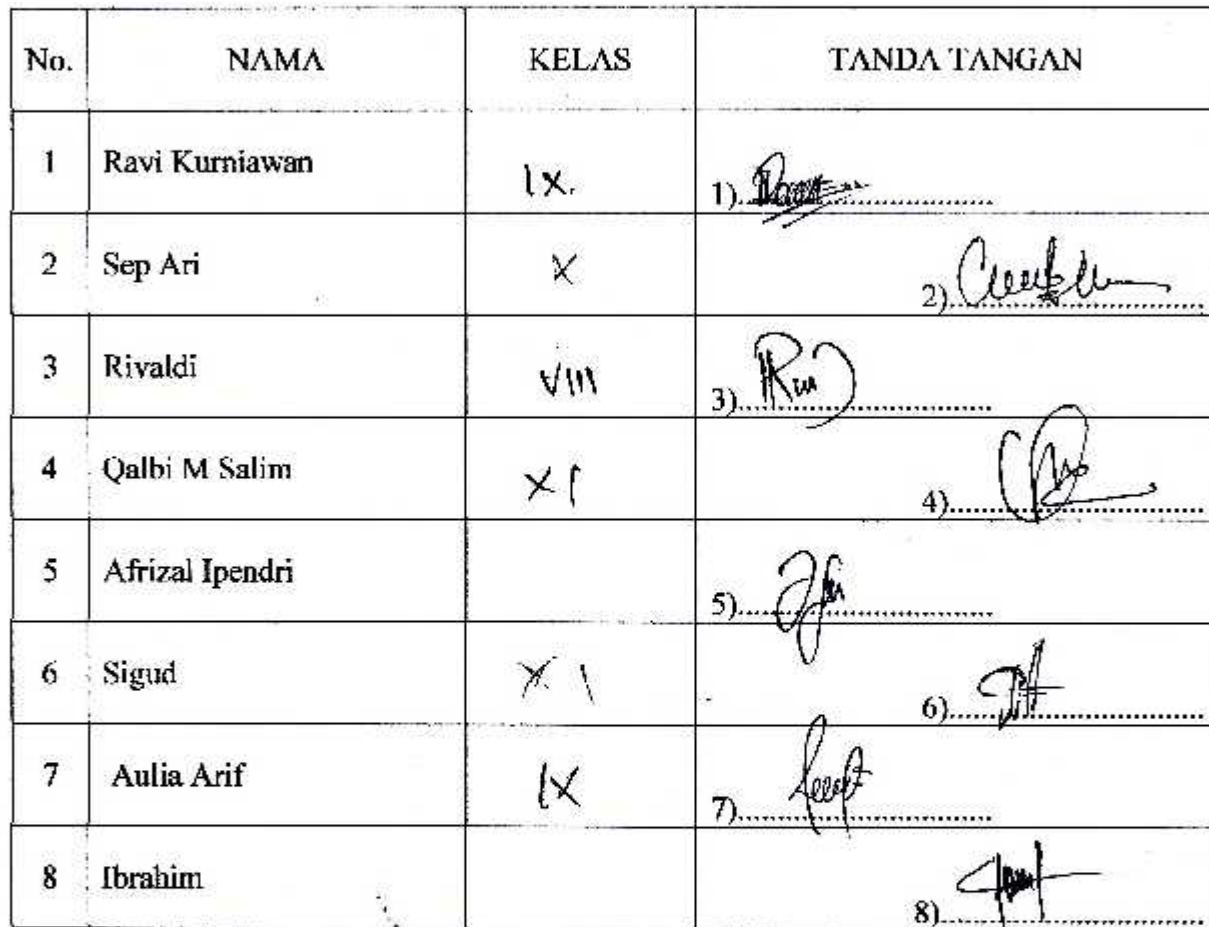 No. NAMA KELAS TANDA TANGAN
1 Ravi Kurniawan IX. 1)
2 Sep Ari X 2)
3 Rivaldi VIII 3)
4 Qalbi M Salim XI 4)
5 Afrizal Ipendri 5)
6 Sigud XI 6)
7 Aulia Arif IX 7)
8 Ibrahim 8)